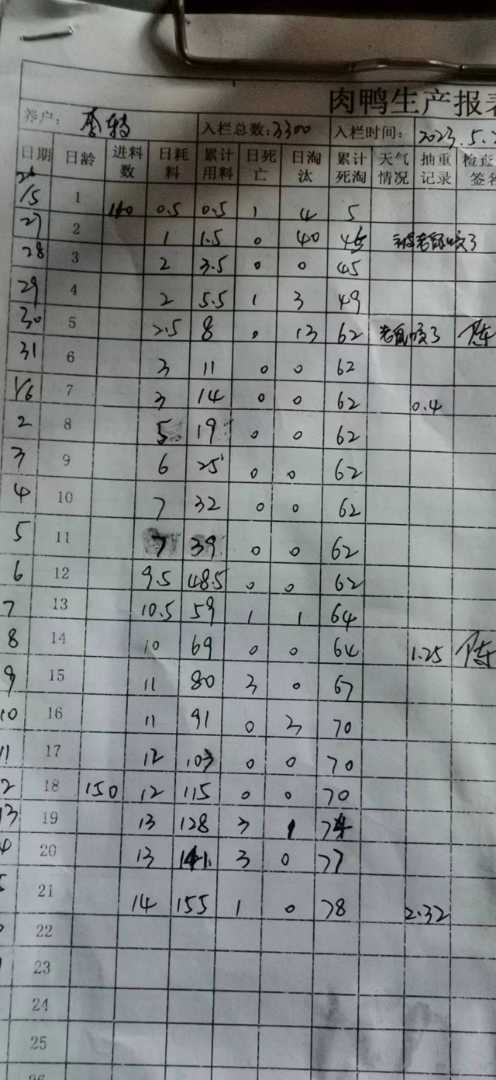 肉鸭生产报表
养户: 入栏总数:3300 入栏时间: 2023.5.2
日期 日龄 进料数 日耗料 累计用料 日死亡 日淘汰 累计死淘 天气情况 抽重记录 检查签名
26/5 1 160 0.5 0.5 1 4 5
27 2 1 1.5 0 40 45 被老鼠咬了
28 3 2 3.5 0 0 45
29 4 2 5.5 1 3 49
30 5 2.5 8 0 13 62 老鼠咬了 陈
31 6 3 11 0 0 62
1/6 7 3 14 0 0 62 0.4
2 8 5 19 0 0 62
3 9 6 25 0 0 62
4 10 7 32 0 0 62
5 11 7 39 0 0 62
6 12 9.5 48.5 0 0 62
7 13 10.5 59 1 1 64
8 14 10 69 0 0 64 1.25 陈
9 15 11 80 3 0 67
10 16 11 91 0 3 70
11 17 12 103 0 0 70
2 18 150 12 115 0 0 70
13 19 13 128 3 1 74
20 13 141 3 0 77
21 14 155 1 0 78 2.32
22
23
24
25
26